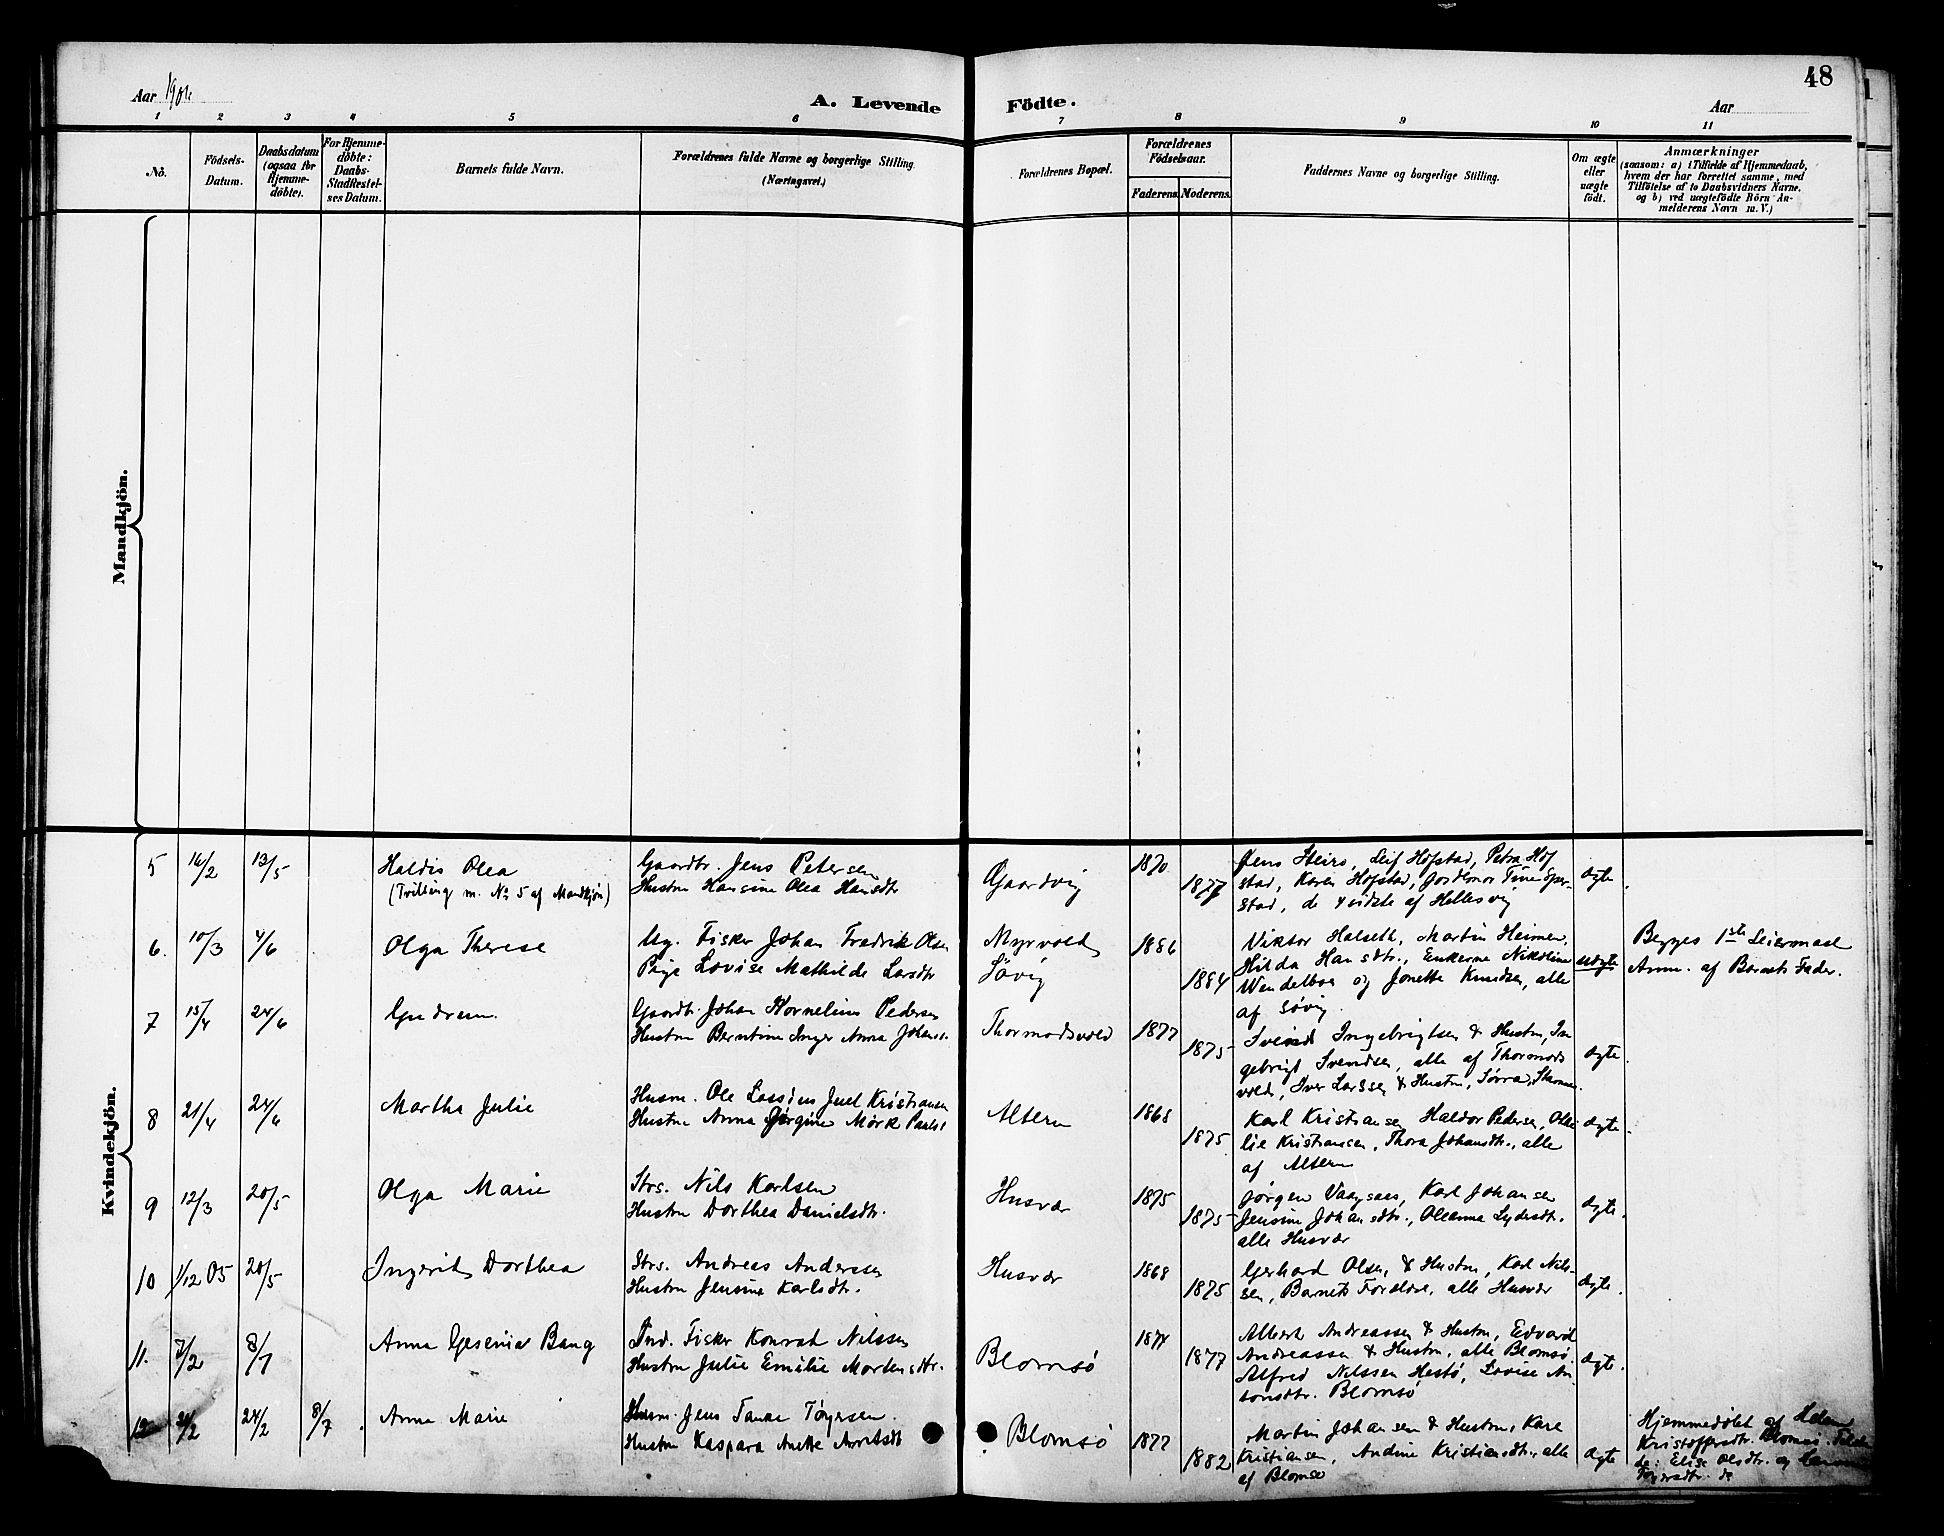 48
Aar 190
A. Levende Födte.
Aar
1 2 3 4 5 6 7 8 9 10 11
No.
Födsels-
Datum.
Daabsdatum
(ogsaa for
Hjemme-
döbte).
For Hjemme-
döbte:
Daabs-
Stadfæstel-
ses Datum.
Barnets fulde Navn.
Forældrenes fulde Navne og borgerlige Stilling.
(Næringsvei.)
Forældrenes Bopæl.
Forældrenes
Födselsaar.
Faderens. Moderens.
Faddernes Navne og borgerlige Stilling.
Om ægte
eller
uægte
födt.
Anmærkninger
(saasom: a) i Tilfælde af Hjemmedaab,
hvem der har forrettet samme, med
Tilföielse af to Daabsvidners Navne.
og b) ved uægtefödte Börn An-
melderens Navn m. V.)
Mandkjön.
Kvindekjön.
5 16/2 13/5
Haldis Olea
(Tvilling m. No 5 af Mandkjön)
Gaardbr. Jens Petersen
Hustru Hansine Olea Hansdtr
Gaardvig
1870
1877
Jens Heirs, Leif Hofstad, Petra Hof
stad, Karen Hofstad, Jordemor Tine Sper-
stad, de 4 sidste af Hellesvig
ægte.
6. 10/3 4/6
Olga Therese
Ug. Fisker Johan Fredrik Olsen
Pige Lovise Mathilde Larsdtr
Myrvold
Søvig
1886
1884
Viktor Halseth, Martin Heimen,
Hilda Hansdtr., Enkerne Nikoline
Wendelboe og Jonette Knudsen, alle
af Søvig.
uægte
Begges 1ste Leiermaal
Anm. af Barnets Fader.
7 15/4 24/6
Gudrun.
Gaardb. Johan Kornelius Pedersen
Hustru Berntine Inger Anna Johans.
Thormodsvold
1877
1875
Svend Ingebrigtsen & Hustru, In
gebrigt Svendsen, alle af Thormods
vold, Iver Larssen & Hustru, Sørra,
ægte.
8 21/4 24/6
Martha Julie
Husm. Ole Lassius Juel Kristiansen
Hustru Anna Jørgine Mørk Paulsd
Altern
1868
1875
Karl Kristiansen Haldor Pedersen,
lie Kristiansen, Thora Johansdtr., alle
af Altern
ægte.
9 12/3 20/5
Olga Marie
Strs. Nils Karlsen
Hustru Dorthea Danielsdtr.
Husvær
1875
1875
Jørgen Vaagsaas, Karl Johansen
Jensine Johansdtr., Oleanna Lydersdt.
alle Husvær
ægte.
10 1/12 05 20/5
Ingerid Dorthea
Strs. Andreas Anderssen
Hustru Jensine Karlsdtr.
Husvær
1868
1875
Gerhard Olsen, & Hustru, Karl Nils-
sen, Barnets Forældre, alle Husvær
ægte.
11. 7/2 8/7
Anna Gesenia Bang
Ind. Fisker Konrad Nilssen
Hustru Julie Emilie Mordensdtr.
Blomsø
1874
1877
Albert Andreassen & Hustru, Edvard
Andreassen & Hustru, alle Blomsø.
Alfred Nilssen Hestø, Lovise An
tonsdtr. Blomsø
ægte.
12 2/2 24/2 8/7
Anna Marie
Husm. Jens Tørgersen.
Hustru Kaspara Anette Arntsdt
Blomsø
1877
1882
Martin Johansen & Hustru, Kare
Kristiansen, Andine Kristiansdtr., alle
af Blomsø
ægte
Hjemmedøbt af Helene
Kristoffersdtr. Blomsø.
Elise Olsdtr. og